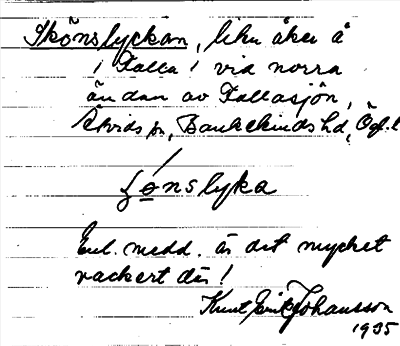 Skönslyckan, liten åker å
i Falla i vid norra
ändan av Fallasjön,
Åtvids sn, Bankekinds hd, Ögl.
ʃønslyka
Enl. medd. är det mycket
vackert där!
Knut Erik Johansson
1935